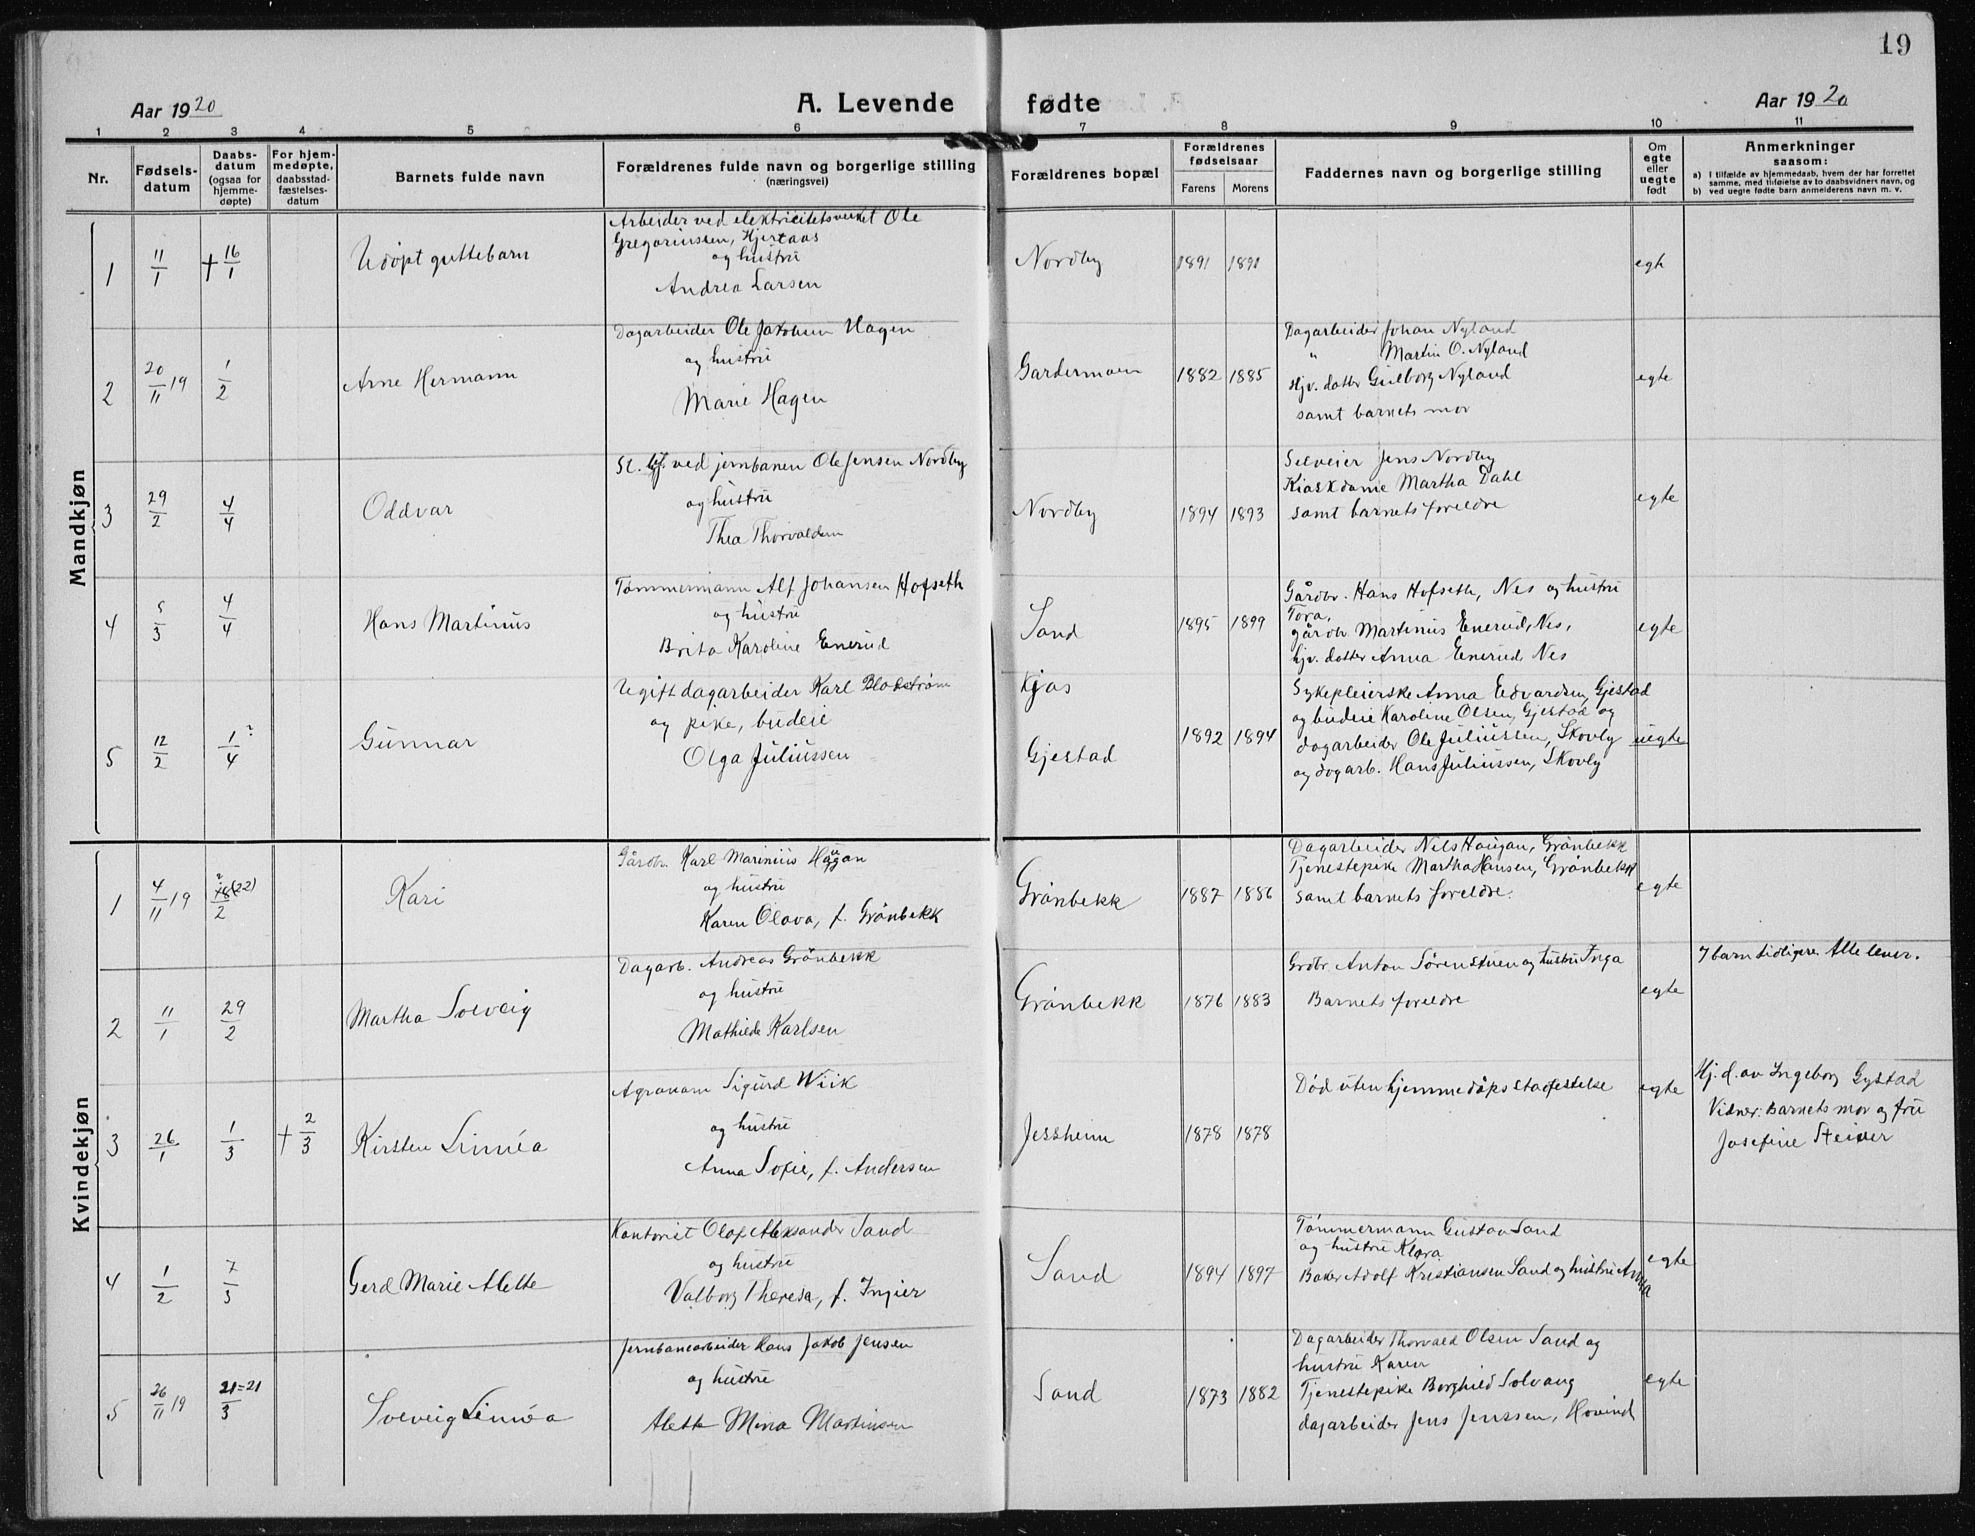 19
Aar 1920
A. Levende fødte
Aar 1920
1 2 3 4 5 6 7 8 9 10 11
Nr.
Fødsels-
datum
Daabs-
datum
(ogsaa for
hjemme-
døpte)
For hjem-
medøpte,
daabsstad-
fæstelses-
datum
Barnets fulde navn
Forældrenes fulde navn og borgerlige stilling
(næringsvei)
Forældrenes bopæl
Forældrenes
fødselsaar
Farens Morens
Faddernes navn og borgerlige stilling
Om
egte
eller
uegte
født
Anmerkninger
saasom:
a) I tilfælde av hjemmedaab, hvem der har forrettet
samme, med tilføielse av to daabsvidners navn, og
b) ved uegte fødte barn anmelderens navn m. v.
Mandkjøn
1
11/1
† 16/1
Udøpt guttebarn
Arbeider ved elektricitetsverket Ole
Gregoriussen, Hjertaas
og hustru
Andrea Larsen
Nordby
1891 1891
egte
2
20/11 19
1/2
Arne Hermann
Dagarbeider Ole Jakobsen Hagen
og hustru
Marie Hagen
Gardermoen
1882 1885
Dagarbeider Johan Nyland
" Martin O. Nyland
Hjv. datter Gulborg Nyland
samt barnets mor
egte
3
29/2
4/4
Oddvar
St. ved jernbanen Ole Jensen Nordby
og hustru
Thea Thorvaldsen
Nordby
1894 1893
Selveier Jens Nordby
Kioskdame Martha Dahl
samt barnets foreldre
egte
4
5/3
4/4
Hans Martinus
Tømmermann Alf Johansen Hofseth
og hustru
Brita Karoline Enerud
Sand
1895 1899
Gårdbr. Hans Hofseth, Nes og hustru
Tora,
gårdbr. Martinus Enerud, Nes,
hjv. datter Anna Enerud, Nes
egte
5
12/2
1/4 ?
Gunnar
Ugift dagarbeider Karl Blokstrøm
og pike, budeie
Olga Juliussen
Kjos
Gjestad
1892 1894
Sykepleierske Anna Edvardsen, Gjestad
og budeie Karoline Olsen, Gjestad og
dagarbeider Ole Juliussen, Skovly
og dagarb. Hans Juliussen, Skovly
uegte
Kvindekjøn
1
4/11 19
? 18(22)/2
Kari
Gårdbr. Karl Marinius Haugan
og hustru
Karen Olava, f. Grønbekk
Grønbekk
1887 1886
Dagarbeider Nils Haugan, Grønbekk
Tjenestepike Martha Hansen, Grønbekk
samt barnets foreldre.
egte
2
11/1
29/2
Martha Solveig
Dagarb. Andreas Grønbekk
og hustru
Mathilde Karlsen
Grønbekk
1876 1883
Grdbr. Anton Sørenstuen og hustru Inga
Barnets foreldre
egte
7 barn tidligere. Alle lever.
3
26/1
1/3
† 2/3
Kirsten Linnéa
Agronom Sigurd Wiik
og hustru
Anna Sofie, f. Andersen
Jessheim
1878 1878
Død uten hjemmedåpsstadfestelse
egte
Hj. d. av Ingeborg Gystad
Vidner: Barnets mor og fru
Josefine Steiner
4
1/2
7/3
Gerd Marie Alette
Kontorist Olaf Aleksander Sand
og hustru
Valborg Theresa, f. Ingier
Sand
1894 1897
Tømmermann Gustav Sand
og hustru Klara
Baker Adolf Kristiansen Sand og hustru Anna
egte
5
26/11 19
21=21/3
Solveig Linnéa
Jernbanearbeider Hans Jakob Jensen
og hustru
Alette Mina Martinsen
Sand
1873 1882
Dagarbeider Thorvald Olsen Sand og
hustru Karen
Tjenestepike Borghild Solvang
dagarbeider Jens Jenssen, Hovind
egte